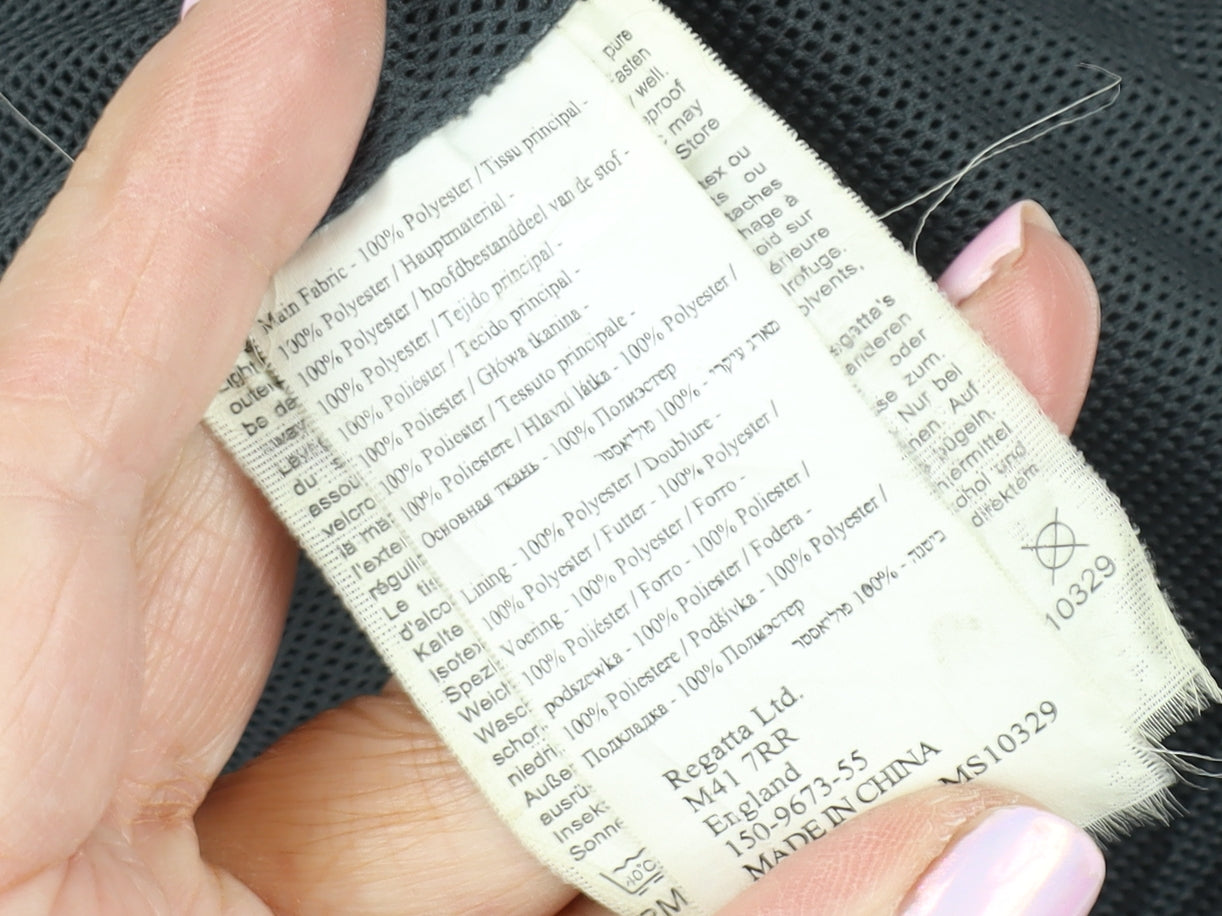 Main Fabric - 100% Polyester / Tissu principal -
100% Polyester / Hauptmaterial -
100% Polyester / hoofdbestanddeel van de stof -
100% Polyester / Tejido principal -
100% Poliéster / Tecido principal -
100% Poliester / Główa tkanina -
100% Poliester / Tessuto principale -
100% Poliestere / Hlavní látka - 100% Polyester /
Основная ткань - 100% Полиэстер
מארג עיקרי - 100% פוליאסטר
Lining - 100% Polyester / Doublure -
100% Polyester / Futter - 100% Polyester /
Voering - 100% Polyester / Forro -
100% Poliéster / Forro - 100% Poliester /
podszewka - 100% Poliester / Fodera -
100% Poliestere / Podšívka - 100% Polyester /
Подкладка - 100% Полиэстер
ביטנה - 100% פוליאסטר
Regatta Ltd.
M41 7RR
England
150-9673-55
MADE IN CHINA
MS10329
pure
asten
well.
proof
may
Store
ex ou
ou
taches
hage à
oid sur
érieure
rofuge.
olvents,
egatta's
anderen
oder
se zum
Nur bei
nen. Auf
bügeln.
niermittel
ohol und
direktem
10329
outer
be de
way
du
assou
velcro
la ma
l'exte
réguli
Le tis
d'alco
Kalte
Isotex
Spezi
Weich
Wasc
schon
niedri
Außer
ausrü
Insek
Sonne
40°C
RM